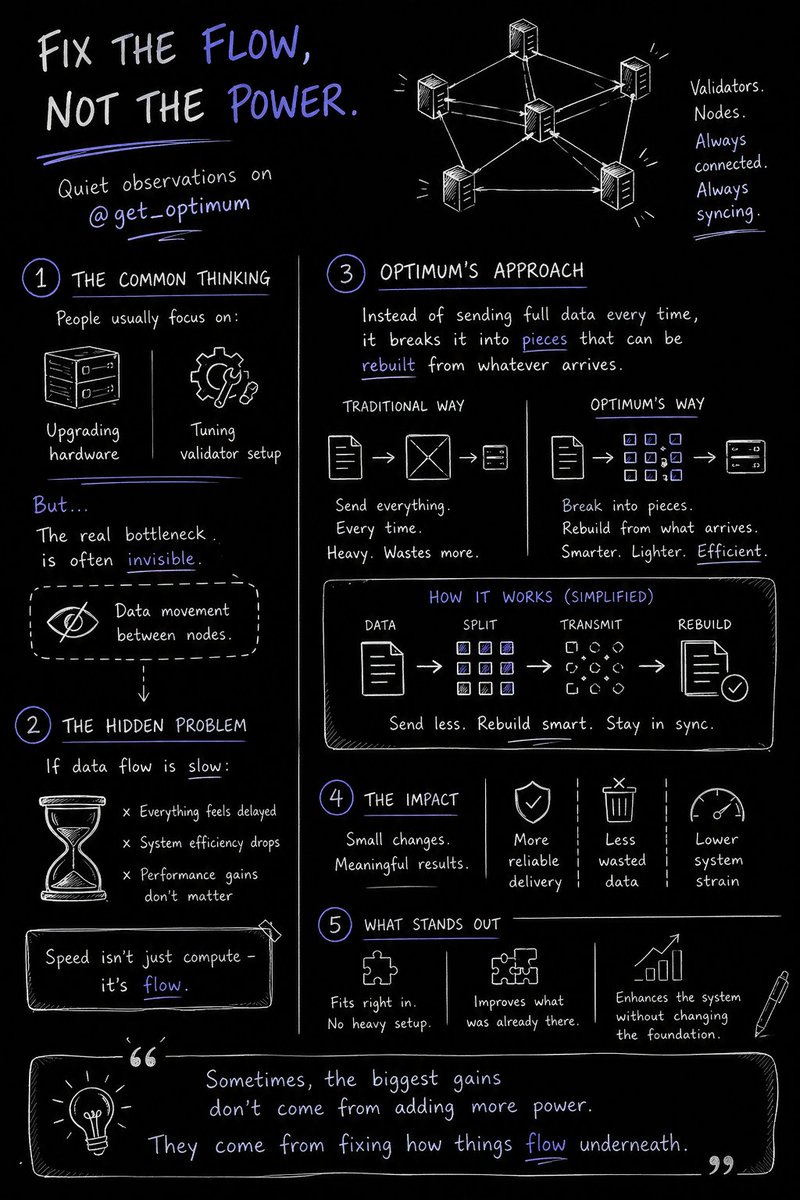 FIX THE FLOW,
NOT THE POWER.
Quiet observations on
@get_optimum
Validators.
Nodes.
Always
connected.
Always
syncing.
1 THE COMMON THINKING
People usually focus on:
Upgrading
hardware
Tuning
validator setup
But...
The real bottleneck.
is often invisible.
Data movement
between nodes.
2 THE HIDDEN PROBLEM
If data flow is slow:
x Everything feels delayed
x System efficiency drops
x Performance gains
don't matter
Speed isn't just compute –
it's flow.
3 OPTIMUM'S APPROACH
Instead of sending full data every time,
it breaks it into pieces that can be
rebuilt from whatever arrives.
TRADITIONAL WAY
Send everything.
Every time.
Heavy. Wastes more.
OPTIMUM'S WAY
Break into pieces.
Rebuild from what arrives.
Smarter. Lighter. Efficient.
HOW IT WORKS (SIMPLIFIED)
DATA
SPLIT
TRANSMIT
REBUILD
Send less. Rebuild smart. Stay in sync.
4 THE IMPACT
Small changes.
Meaningful results.
More
reliable
delivery
Less
wasted
data
Lower
system
strain
5 WHAT STANDS OUT
Fits right in.
No heavy setup.
Improves what
was already there.
Enhances the system
without changing
the foundation.
“
Sometimes, the biggest gains
don't come from adding more power.
They come from fixing how things flow underneath.
”